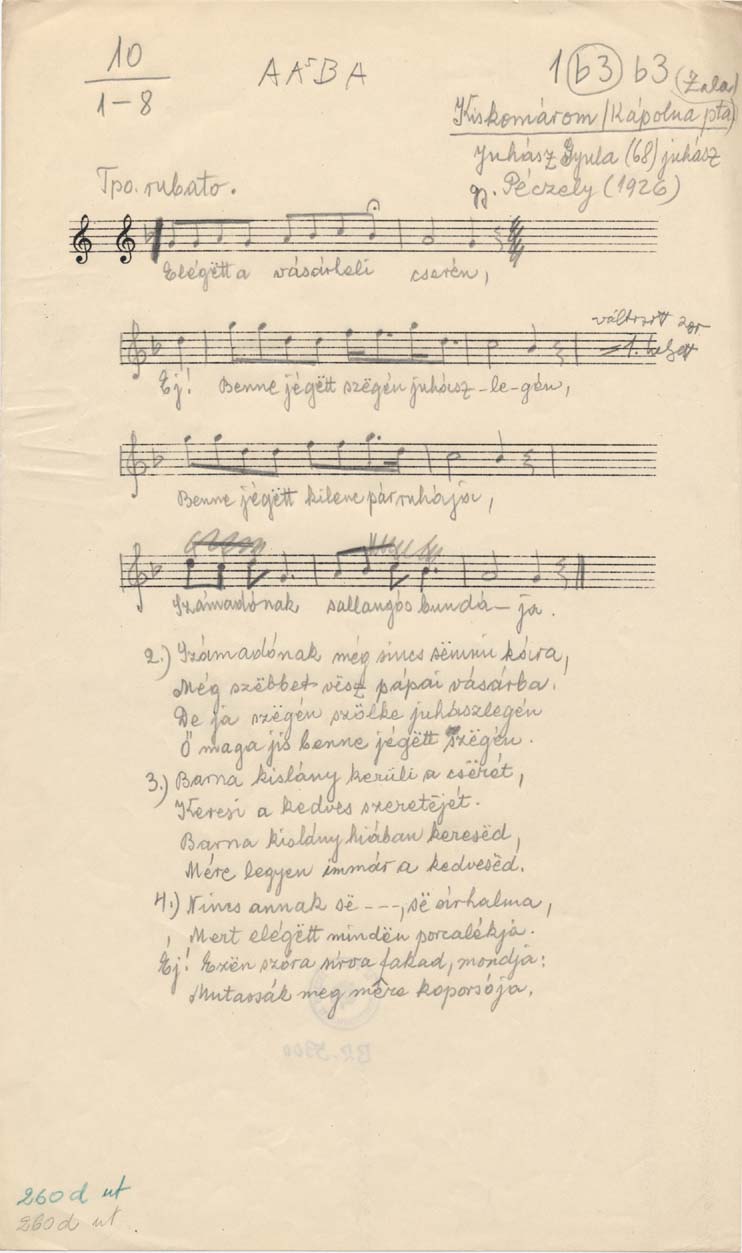 10
1-8
A A⁵ B A
1 (b3) b3
(Zala)
Kiskomárom /Kápolna pta)
Juhász Gyula (68) juhász
gy. Péczely (1926)
Tpo. rubato.
Elégëtt a vásárheli cserén,
változott
1. helyett
Ej! Benne jégëtt szëgén juhász-le-gén,
Benne jégëtt kilenc pár ruhája,
Számadónak sallangós bundá-ja.
2.) Számadónak még sincs sëmmi kára,
Még szëbbet vësz pápai vásárba.
De ja szëgén szölke juhászlegén
Ő maga jis benne jégëtt szëgén.
3.) Barna kislány kerüli a csërét,
Keresi a kedves szeretëjét.
Barna kislány hiában keresëd,
Mére legyen immár a kedvesëd.
4.) Nincs annak së ---, së sírhalma,
Mert elégëtt mindën porcalékja.
Éj! Ezën szóra sírva fakad, mondja:
Mutassák meg mêre koporsója.
BR. 5300
260 d ut
260 d ut